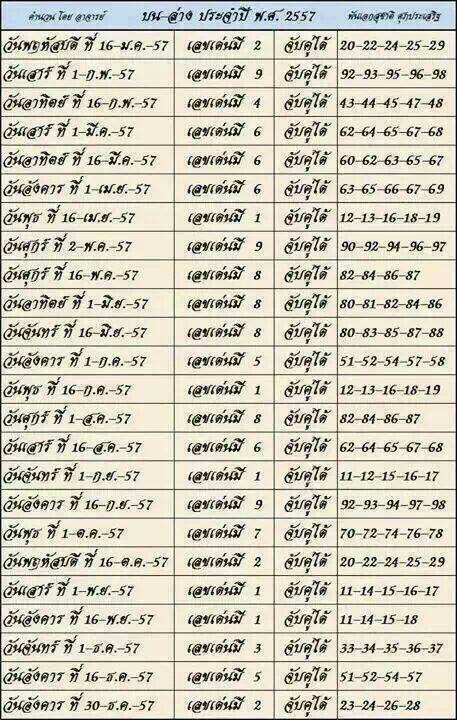 คำนวน โดย อาจารย์ บน-ล่าง ประจำปี พ.ศ. 2557 พันเอกสุชาติ สุภประเสริฐ
วันพฤหัสบดี ที่ 16-ม.ค.-57 เลขเด่นมี 2 จับคู่ได้ 20-22-24-25-29
วันเสาร์ ที่ 1-ก.พ.-57 เลขเด่นมี 9 จับคู่ได้ 92-93-95-96-98
วันอาทิตย์ ที่ 16-ก.พ.-57 เลขเด่นมี 4 จับคู่ได้ 43-44-45-47-48
วันเสาร์ ที่ 1-มี.ค.-57 เลขเด่นมี 6 จับคู่ได้ 62-64-65-67-68
วันอาทิตย์ ที่ 16-มี.ค.-57 เลขเด่นมี 6 จับคู่ได้ 60-62-63-65-67
วันอังคาร ที่ 1-เม.ย.-57 เลขเด่นมี 6 จับคู่ได้ 63-65-66-67-69
วันพุธ ที่ 16-เม.ย.-57 เลขเด่นมี 1 จับคู่ได้ 12-13-16-18-19
วันศุกร์ ที่ 2-พ.ค.-57 เลขเด่นมี 9 จับคู่ได้ 90-92-94-96-97
วันศุกร์ ที่ 16-พ.ค.-57 เลขเด่นมี 8 จับคู่ได้ 82-84-86-87
วันอาทิตย์ ที่ 1-มิ.ย.-57 เลขเด่นมี 8 จับคู่ได้ 80-81-82-84-86
วันจันทร์ ที่ 16-มิ.ย.-57 เลขเด่นมี 8 จับคู่ได้ 80-83-85-87-88
วันอังคาร ที่ 1-ก.ค.-57 เลขเด่นมี 5 จับคู่ได้ 51-52-54-57-58
วันพุธ ที่ 16-ก.ค.-57 เลขเด่นมี 1 จับคู่ได้ 12-13-16-18-19
วันศุกร์ ที่ 1-ส.ค.-57 เลขเด่นมี 8 จับคู่ได้ 82-84-86-87
วันเสาร์ ที่ 16-ส.ค.-57 เลขเด่นมี 6 จับคู่ได้ 62-64-65-67-68
วันจันทร์ ที่ 1-ก.ย.-57 เลขเด่นมี 1 จับคู่ได้ 11-12-15-16-17
วันอังคาร ที่ 16-ก.ย.-57 เลขเด่นมี 9 จับคู่ได้ 92-93-94-97-98
วันพุธ ที่ 1-ต.ค.-57 เลขเด่นมี 7 จับคู่ได้ 70-72-74-76-78
วันพฤหัสบดี ที่ 16-ต.ค.-57 เลขเด่นมี 2 จับคู่ได้ 20-22-24-25-29
วันเสาร์ ที่ 1-พ.ย.-57 เลขเด่นมี 1 จับคู่ได้ 11-14-15-16-17
วันอังคาร ที่ 16-พ.ย.-57 เลขเด่นมี 1 จับคู่ได้ 11-14-15-18
วันจันทร์ ที่ 1-ธ.ค.-57 เลขเด่นมี 3 จับคู่ได้ 33-34-35-36-37
วันอังคาร ที่ 16-ธ.ค.-57 เลขเด่นมี 5 จับคู่ได้ 51-52-54-57
วันอังคาร ที่ 30-ธ.ค.-57 เลขเด่นมี 2 จับคู่ได้ 23-24-26-28